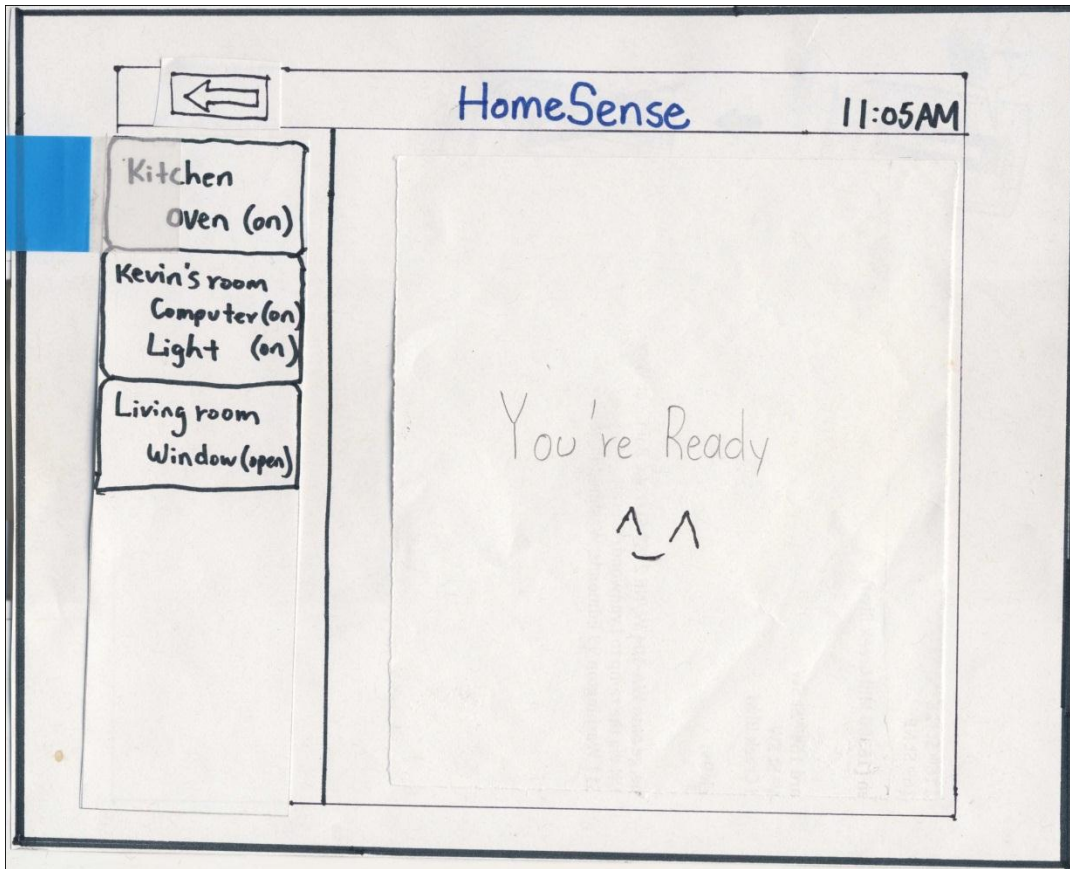 HomeSense
11:05AM
Kitchen
Oven (on)
Kevin's room
Computer (on)
Light (on)
Living room
Window (open)
You're Ready